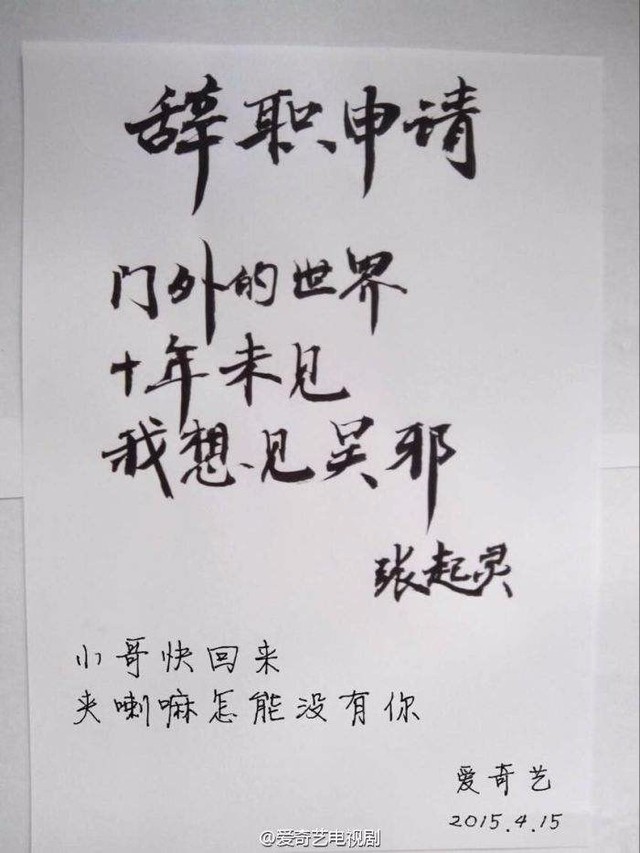 辞职申请
门外的世界
十年未见
我想见吴邪
张起灵
小哥快回来
夹喇嘛怎能没有你
爱奇艺
2015.4.15
@爱奇艺电视剧